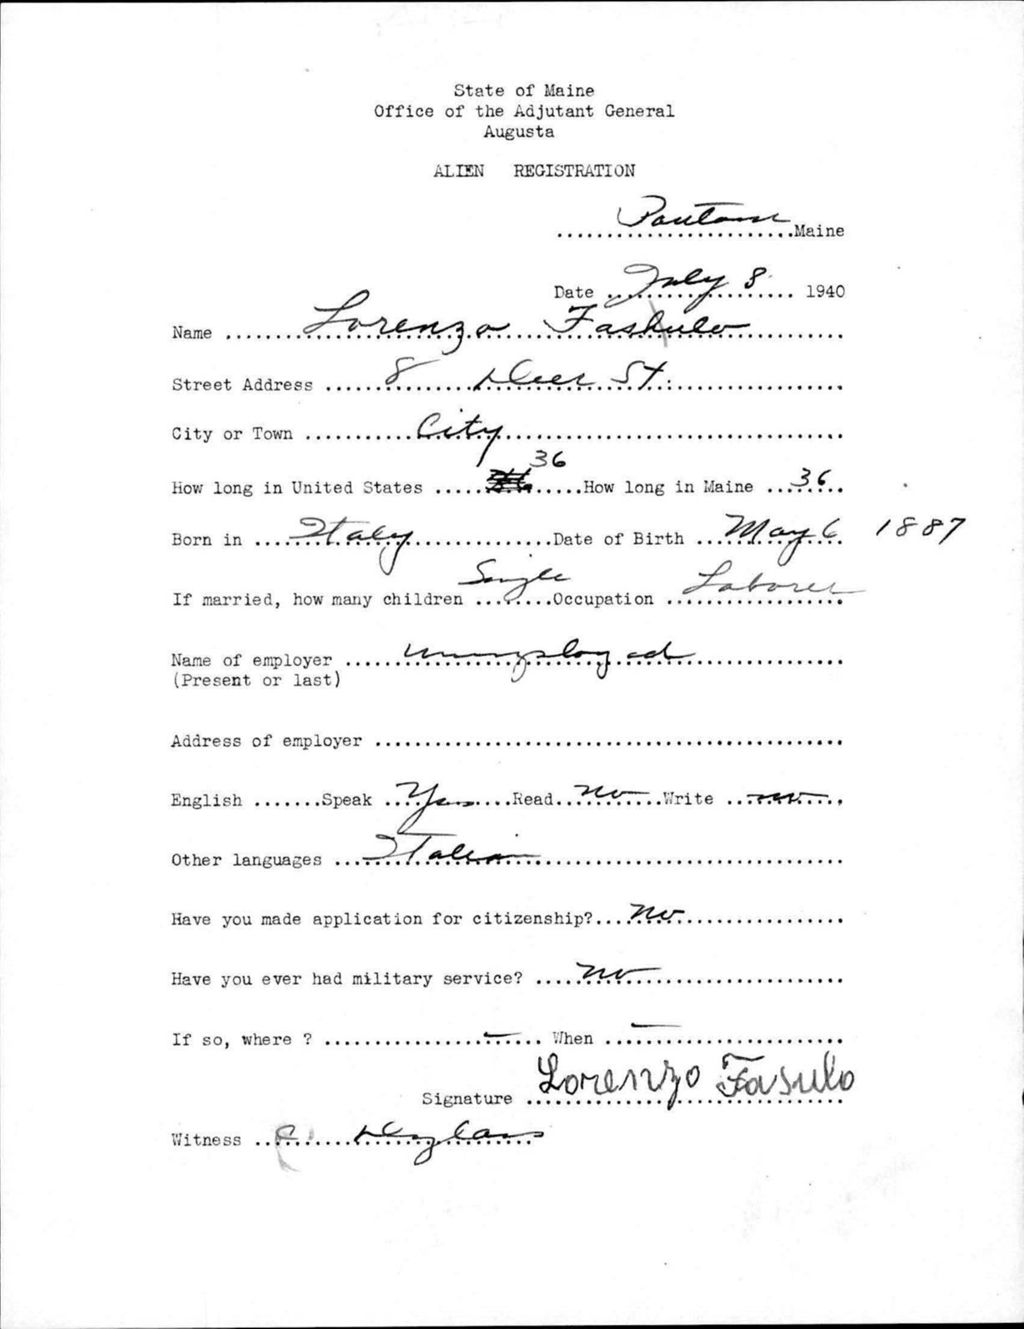 State of Maine
Office of the Adjutant General
Augusta
ALIEN REGISTRATION
.......................Maine
Date July 8 1940
Name Lorenzo Fashulo
Street Address 8 Deer St.
City or Town City
36
How long in United States ..........How long in Maine 36
Born in Italy Date of Birth May 6 1887
If married, how many children Single Occupation Laborer
Name of employer unemployed
(Present or last)
Address of employer
English Speak Yes Read No Write no
Other languages Italian
Have you made application for citizenship? No
Have you ever had military service? no
If so, where ? — When —
Signature Lorenzo Fasulo
Witness